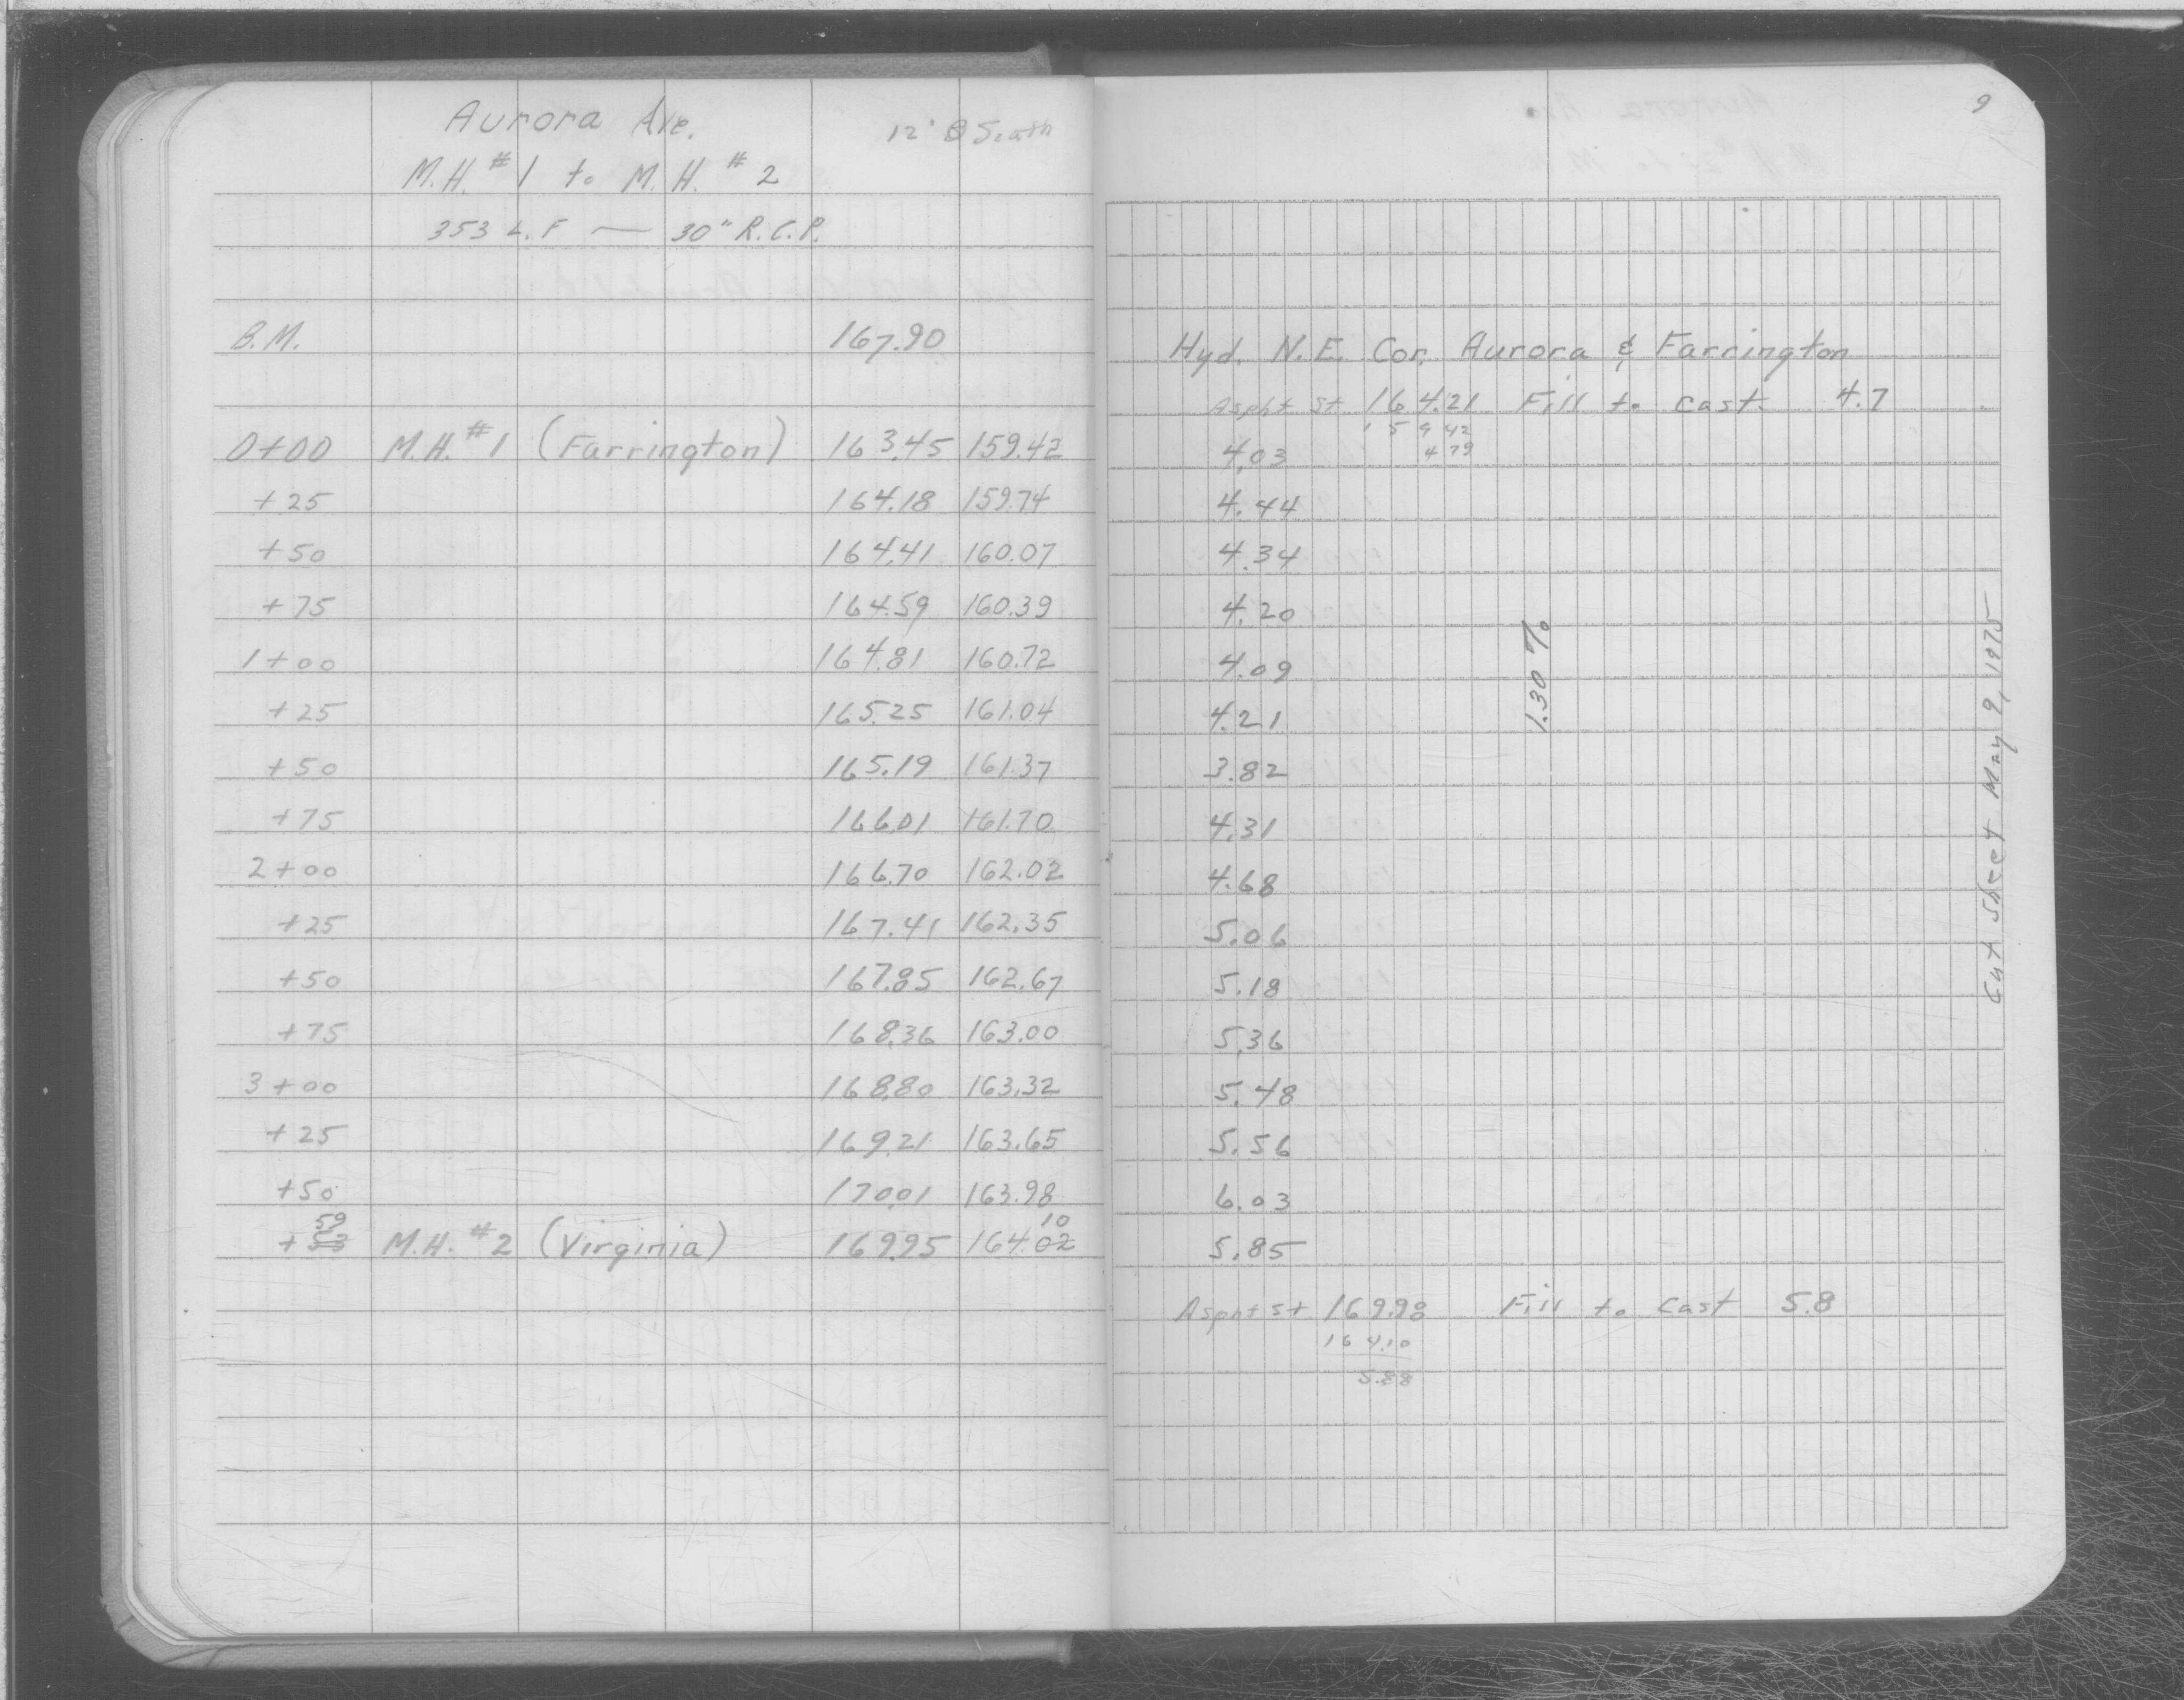 Aurora Ave.
12' South
M.H. #1 to M.H. #2
353 L.F — 30" R.C.P.
B.M. 167.90
0+00 M.H. #1 (Farrington) 163.45 159.42
+25 164.18 159.74
+50 164.41 160.07
+75 164.59 160.39
1+00 164.81 160.72
+25 165.25 161.04
+50 165.19 161.37
+75 166.01 161.70
2+00 166.70 162.02
+25 167.41 162.35
+50 167.85 162.67
+75 168.36 163.00
3+00 168.80 163.32
+25 169.21 163.65
+50 170.01 163.98
59 10
+53 M.H. #2 (Virginia) 169.95 164.02
9
Hyd. N.E. Cor. Aurora & Farrington
Aspht St 164.21 Fill to cast 4.7
159 42
4.03 4 79
4.44
4.34
4.20
4.09
4.21
3.82
4.31
4.68
5.06
5.18
5.36
5.48
5.56
6.03
5.85
Aspht St 169.98 Fill to Cast 5.8
164.10
5.88
1.30 %
Cut Sheet May 9, 1975